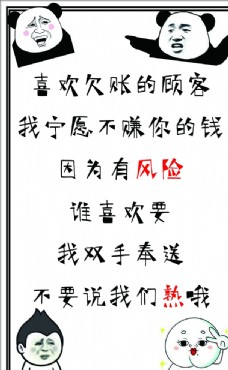 喜欢欠账的顾客
我宁愿不赚你的钱
因为有风险
谁喜欢要
我双手奉送
不要说我们熟哦